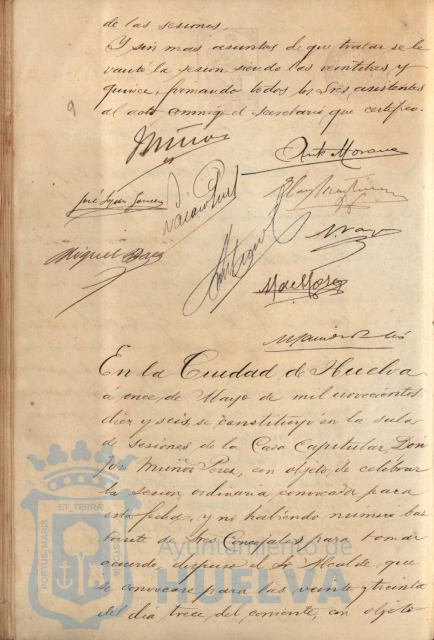 de las sesiones.
Y sin mas asuntos de que tratar se le
vantó la sesion siendo las veintitres y
quince, firmando todos los Sres. asistentes
al acto conmigo el Secretario que certifico.
9
Muñoz
Antº Morano
José
Miguel Baez
En la Ciudad de Huelva
á once de Mayo de mil novecientos
diez y seis, se constituyó en la sala
de Sesiones de la Casa Capitular, Don
José Muñoz Perez, con objeto de celebrar
la sesion ordinaria convocada para
esta fecha, y no habiendo numero bas
tante de Sres Concejales para tomar
acuerdo, dispuso el Sr Alcalde, que
se convocase para las veinte y treinta
del dia trece del corriente, con objeto
PORTUS MARIS ET TERRÆ CUSTODIA
Ayuntamiento de
HUELVA